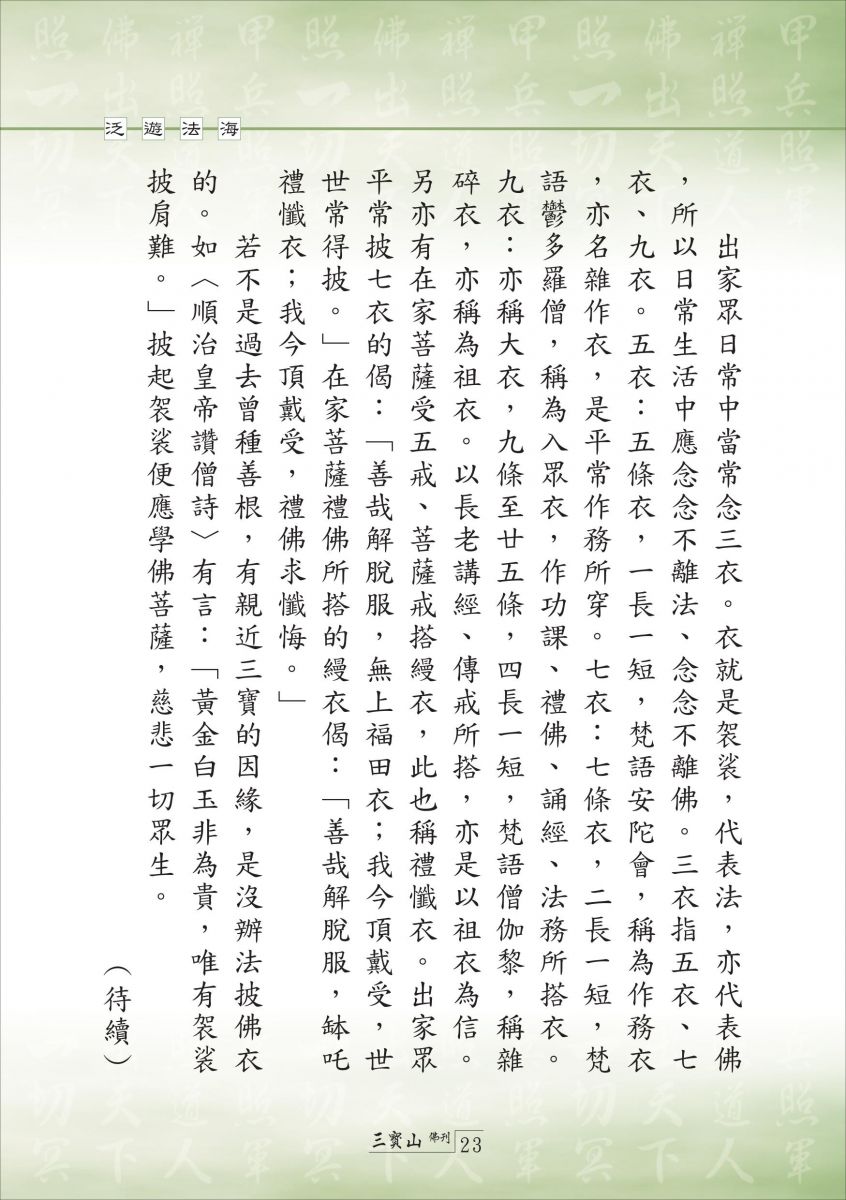 泛遊法海
出家眾日常中當常念三衣。衣就是袈裟，代表法，亦代表佛
，所以日常生活中應念念不離法、念念不離佛。三衣指五衣、七
衣、九衣。五衣：五條衣，一長一短，梵語安陀會，稱為作務衣
，亦名雜作衣，是平常作務所穿。七衣：七條衣，二長一短，梵
語鬱多羅僧，稱為入眾衣，作功課、禮佛、誦經、法務所搭衣。
九衣：亦稱大衣，九條至廿五條，四長一短，梵語僧伽黎，稱雜
碎衣，亦稱為祖衣。以長老講經、傳戒所搭，亦是以祖衣為信。
另亦有在家菩薩受五戒、菩薩戒搭縵衣，此也稱禮懺衣。出家眾
平常披七衣的偈：「善哉解脫服，無上福田衣；我今頂戴受，世
世常得披。」在家菩薩禮佛所搭的縵衣偈：「善哉解脫服，缽吒
禮懺衣；我今頂戴受，禮佛求懺悔。」
若不是過去曾種善根，有親近三寶的因緣，是沒辦法披佛衣
的。如〈順治皇帝讚僧詩〉有言：「黃金白玉非為貴，唯有袈裟
披肩難。」披起袈裟便應學佛菩薩，慈悲一切眾生。
（待續）
三寶山 佛刊 23